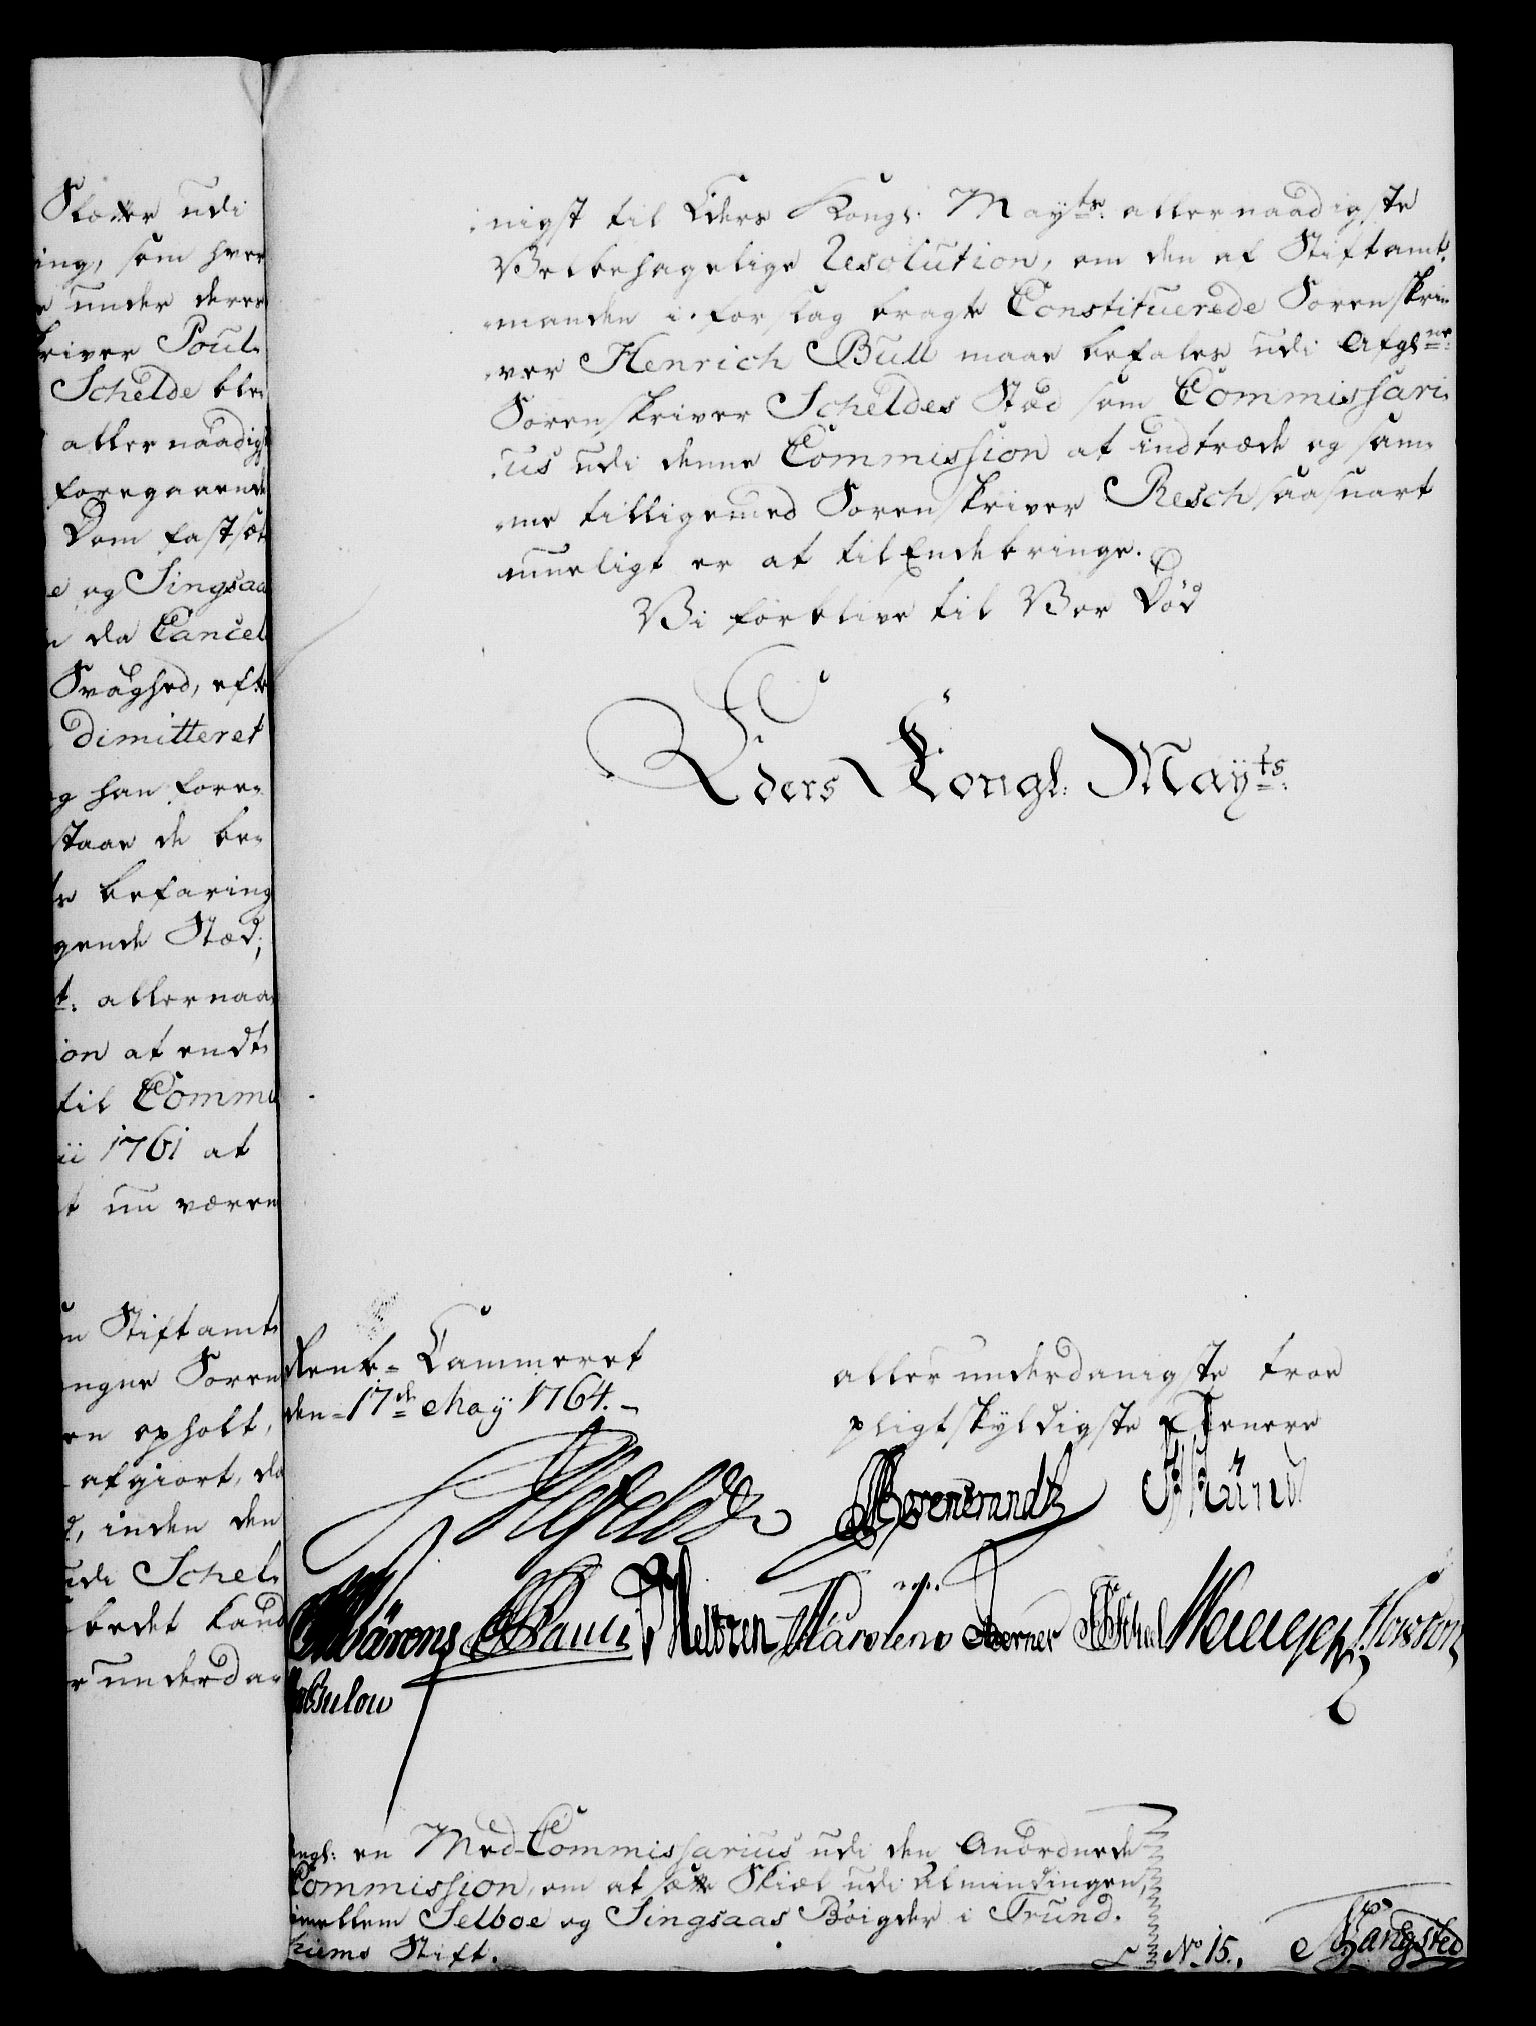 Skatter udi
ing, som hver
under deres
kriver Poul
Schelde ble
allernaadigst
foregaaende
Dom fastsæt
e og Singsaa
n da Cancel
Svaghed, efte
Dimitteret
g han fore-
staar de be-
befaring
gende Stæd;
t: allernaa
ion at endt
til Commis
ii 1761 at
t nu væren
n Stiftamt
ngne Soren
en opholt,
afgiort, da
d, inden den
udi Schel
bedet kand
r underda-
nigst til Eders Kongl: Mayts: allernaadigste
Velbehagelige Resolution, om den af Stiftamt-
manden i forslag bragte Constituerede Sorenskri-
ver Henrich Bull maae befales udi Afgl:ne
Sorenskriver Scheldes Stæd som Commissari-
us udi denne Commission at indtræde og sam-
me tilligemed Sorenskriver Resch saasnart
mueligt er at tilEndebringe.
Vi forblive til Vor Död
Eders Kongl: Mayts:
Rente-Cammeret
den 17de May 1764.
allerunderdanigste troe
pligtskyldigste Tienere
Bulou
ngl: en Med-Commissarius udi den Anordnede
Commission, om at sætte Skiel udi Almindingen,
imellem Selboe og Singsaas Böigder i Trund-
hiems Stift.
No 15.